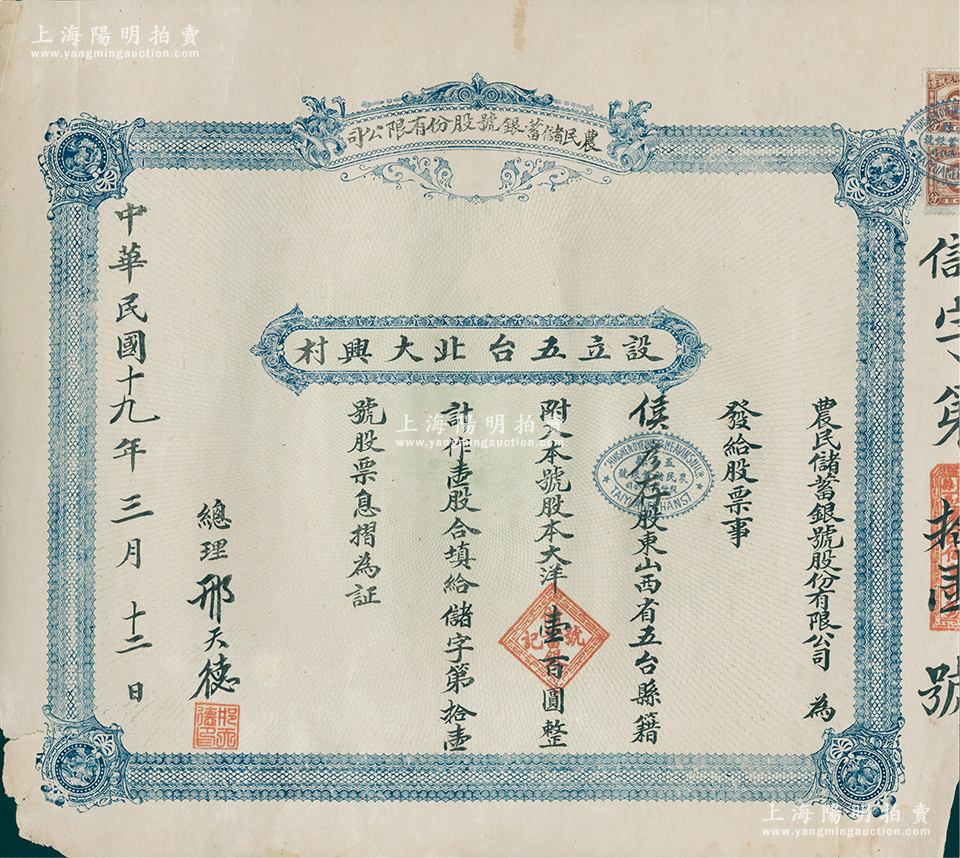 上海陽明拍賣
www.yangmingauction.com
農民儲蓄銀號股份有限公司
設立五台北大興村
農民儲蓄銀號股份有限公司 為
發給股票事
侯彥存股東山西省五台縣籍
附入本號股本大洋壹百圓整
計作壹股合填給儲字第拾壹
號股票息摺為証
總理邢天德
中華民國十九年三月十二日
信字第拾壹號
上海陽明拍賣
www.yangmingauction.com
上海陽明拍賣
www.yangmingauction.com